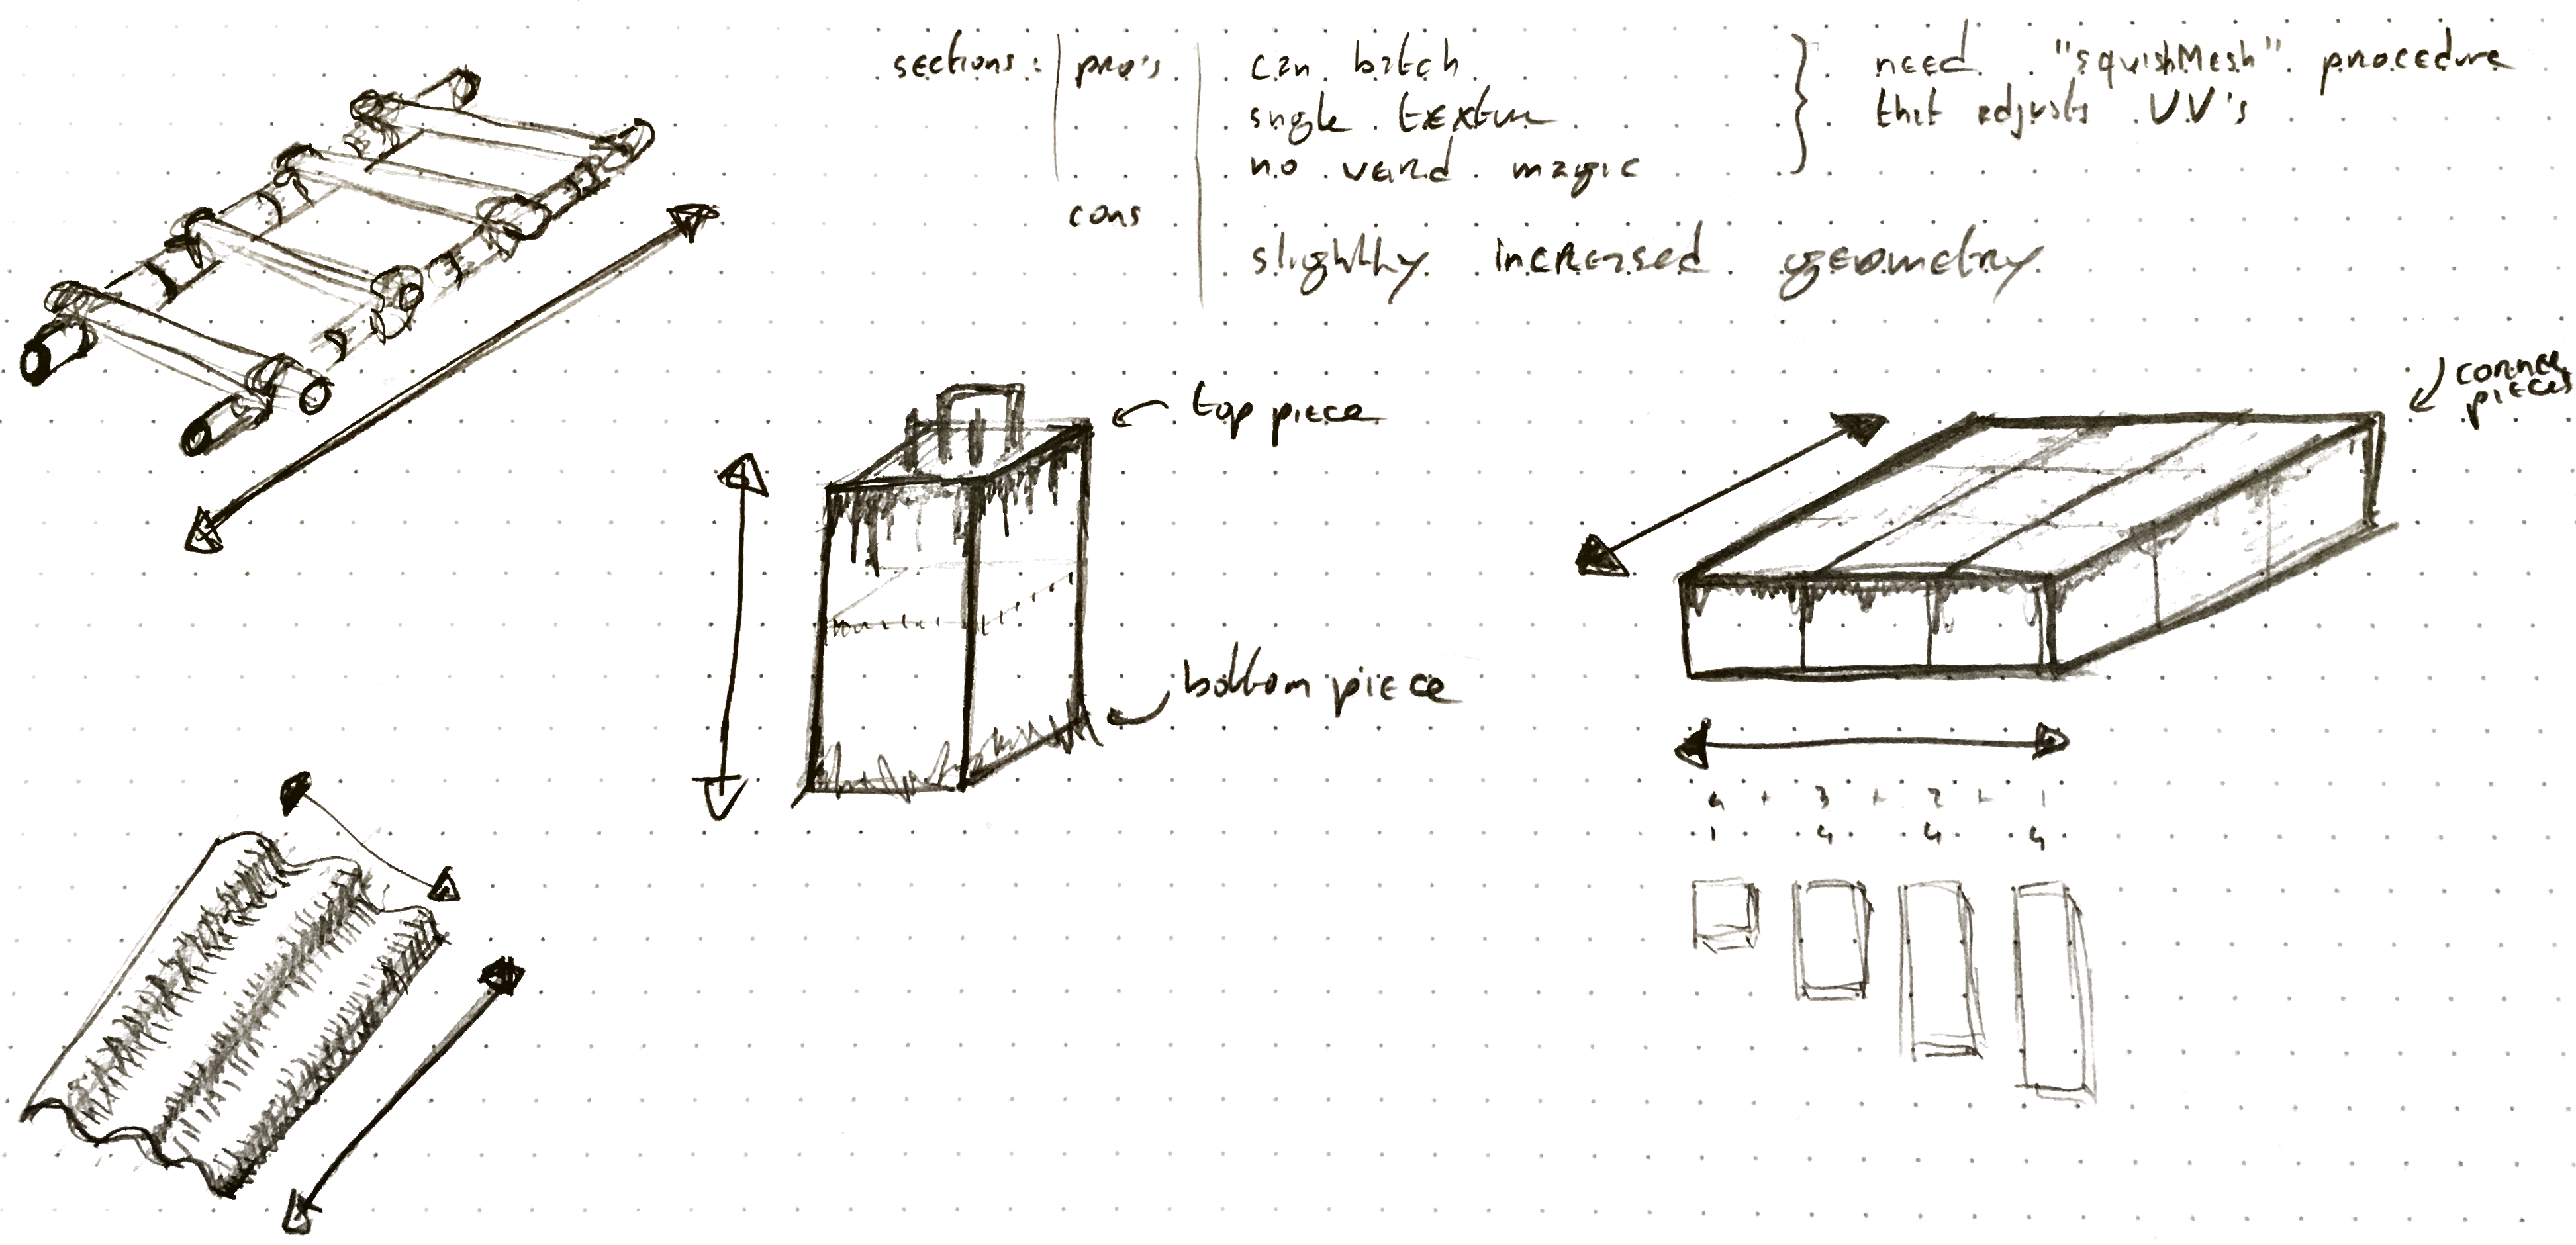 sections: pro's can batch
single textur
no weird magic
} need "squishMesh" procedure
that adjusts UV's
cons
slightly increased geometry
top piece
bottom piece
corner
pieces
4 + 3 + 2 + 1
1 4 4 4